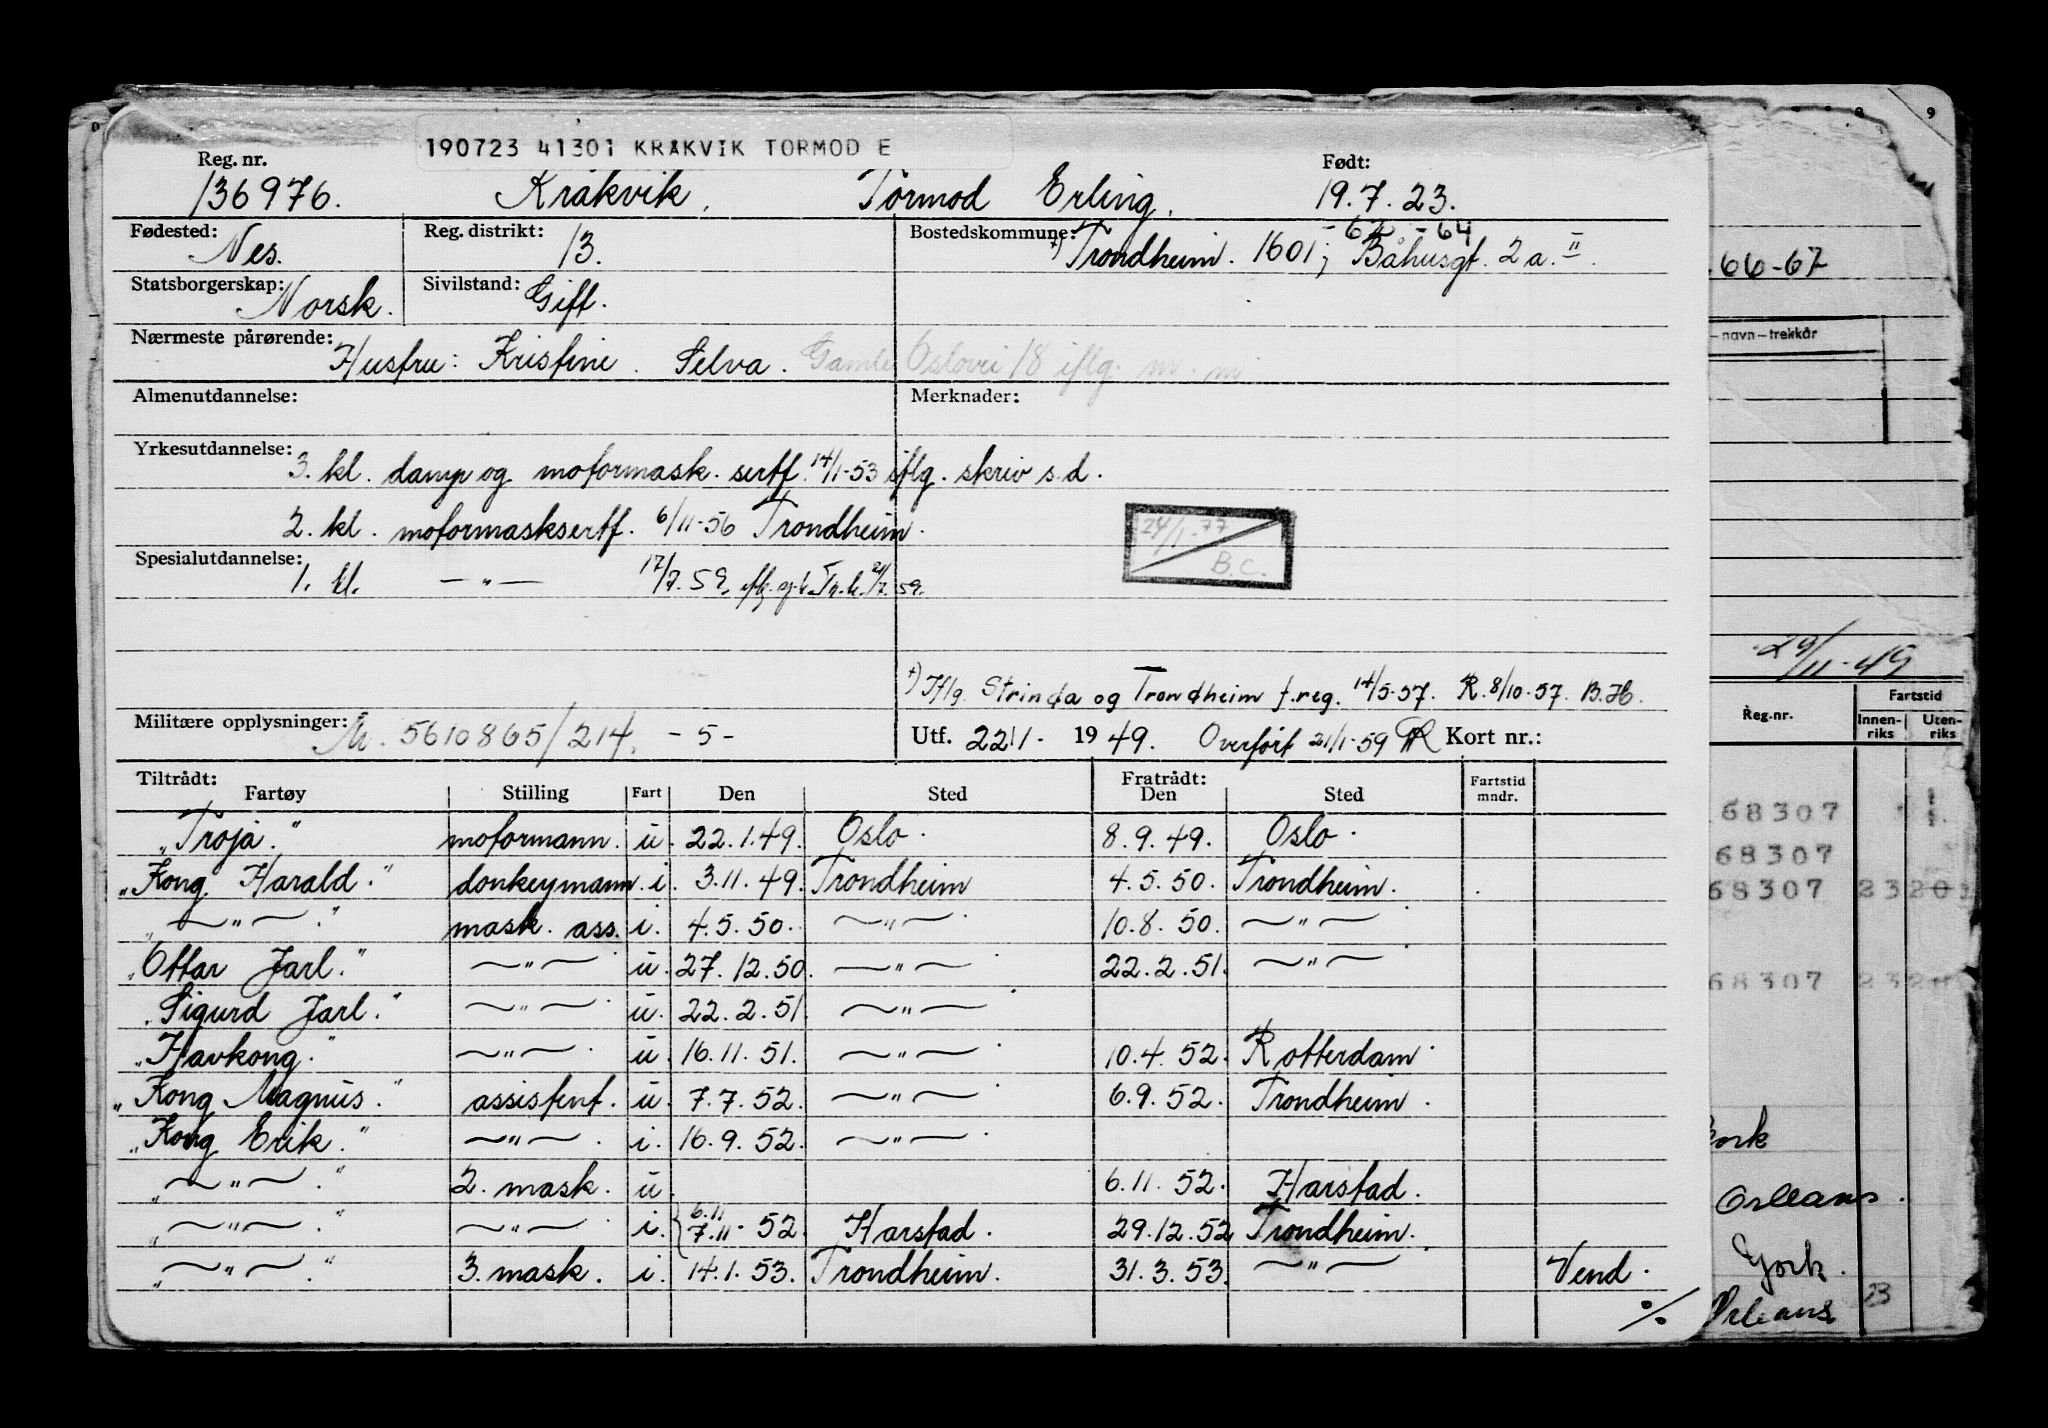 190723 41301 KRÅKVIK TORMOD E
Reg. nr. Født:
136976. Kråkvik, Tormod Erling. 19.7.23.
Fødested: Nes. Reg. distrikt: 13. Bostedskommune: -64
+) Trondheim. 1601; Båhusgt. 2a. II.
Statsborgerskap: Norsk. Sivilstand: Gift.
Nærmeste pårørende: Hustru: Kristine. Selva. Gamle Oslovei 18 iflg. m. m
Almenutdannelse: Merknader:
Yrkesutdannelse: 3. kl. damp og motormask. sertf. 14/1-53 iflg. skriv s.d.
2. kl. motormasksertf. 6/11-56 Trondheim.
24/1-77
B.C.
Spesialutdannelse: 1. kl. —"— 17/7.59.
+) Iflg. Strinda og Trondheim f.reg. 14/5-57. R. 8/10-57. B.H.
Militære opplysninger: M. 5610865/214. -5- Utf. 22/1- 1949. Overført 21/1-59 Kort nr.:
Tiltrådt: Fratrådt:
Fartøy Stilling Fart Den Sted Den Sted Fartstid mndr.
"Troja." motormann. u. 22.1.49. Oslo. 8.9.49. Oslo.
"Kong Harald." donkeymann. i. 3.11.49. Trondheim 4.5.50. Trondheim.
" —"— ." mask. ass. i. 4.5.50. —"— 10.8.50. —"—
"Ottar Jarl." —"— u. 27.12.50. —"— 22.2.51. —"—
"Sigurd Jarl." —"— u. 22.2.51. —"—
"Havkong." —"— u. 16.11.51. —"— 10.4.52. Rotterdam.
"Kong Magnus." assistent. u. 7.7.52. —"— 6.9.52. Trondheim.
"Kong Erik." —"— i. 16.9.52. —"—
" —"— ." 2. mask. u. 6.11.52. Harstad.
" —"— ." —"— i. 6.11 7.11-52. Harstad. 29.12.52 Trondheim.
" —"— ." 3. mask. i. 14.1.53. Trondheim. 31.3.53. —"— Vend.
./.
9
66-67
-navn-trekkår
29/11-49
Reg.nr. Fartstid
Innenriks Utenriks
68307
68307
68307 23201
68307 232
York
Orleans.
York.
Orleans. 23